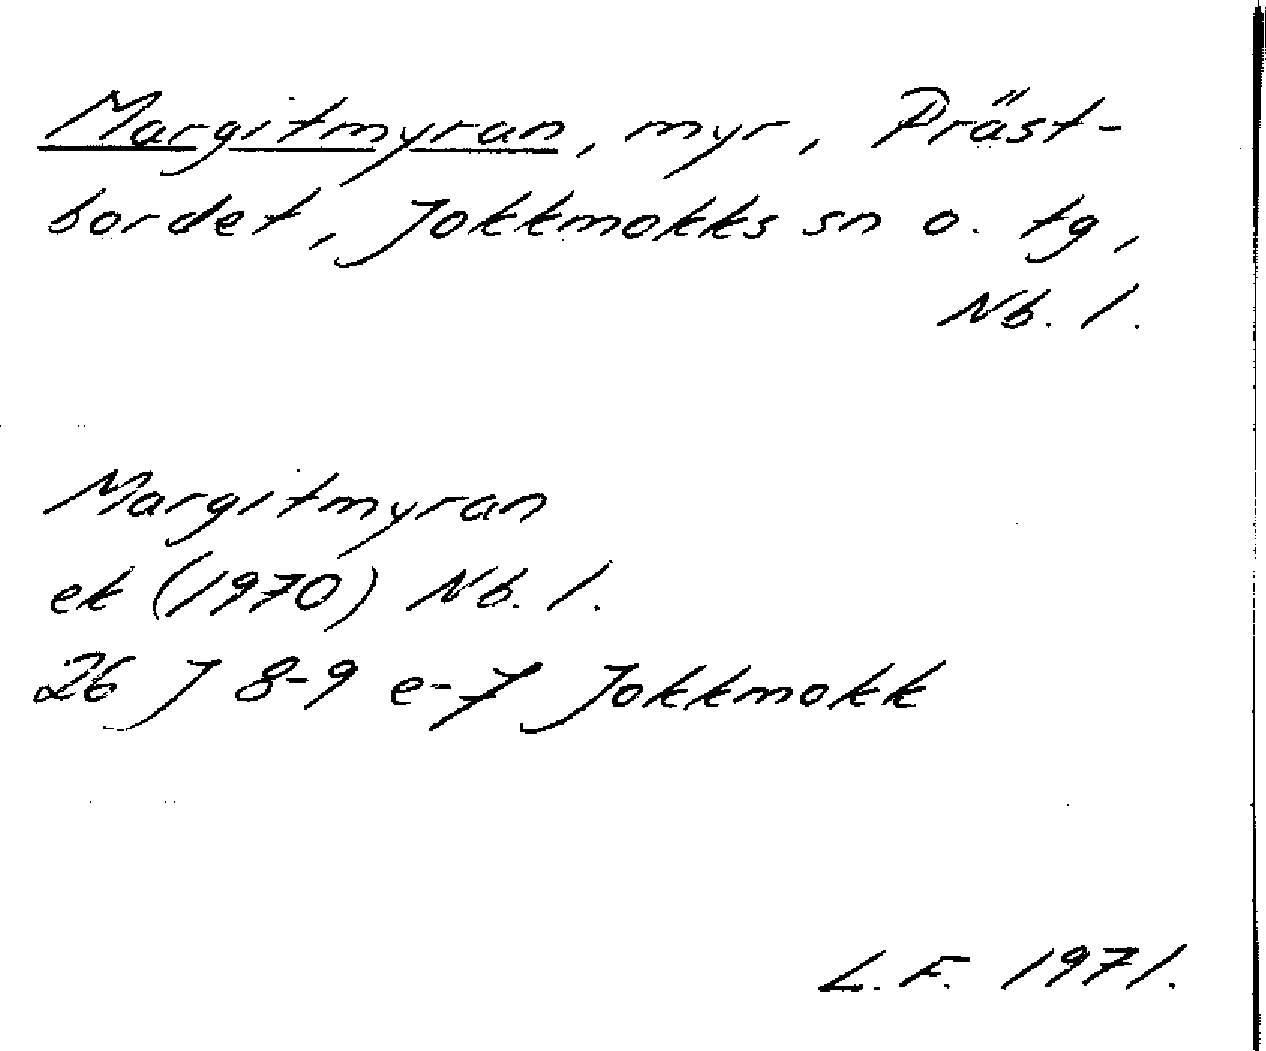 Margitmyran, myr, Präst-
bordet, Jokkmokks sn o. tg,
Nb. l.
Margitmyran
ek (1970) Nb. l.
26 J 8-9 e-7 Jokkmokk
L. F. 1971.